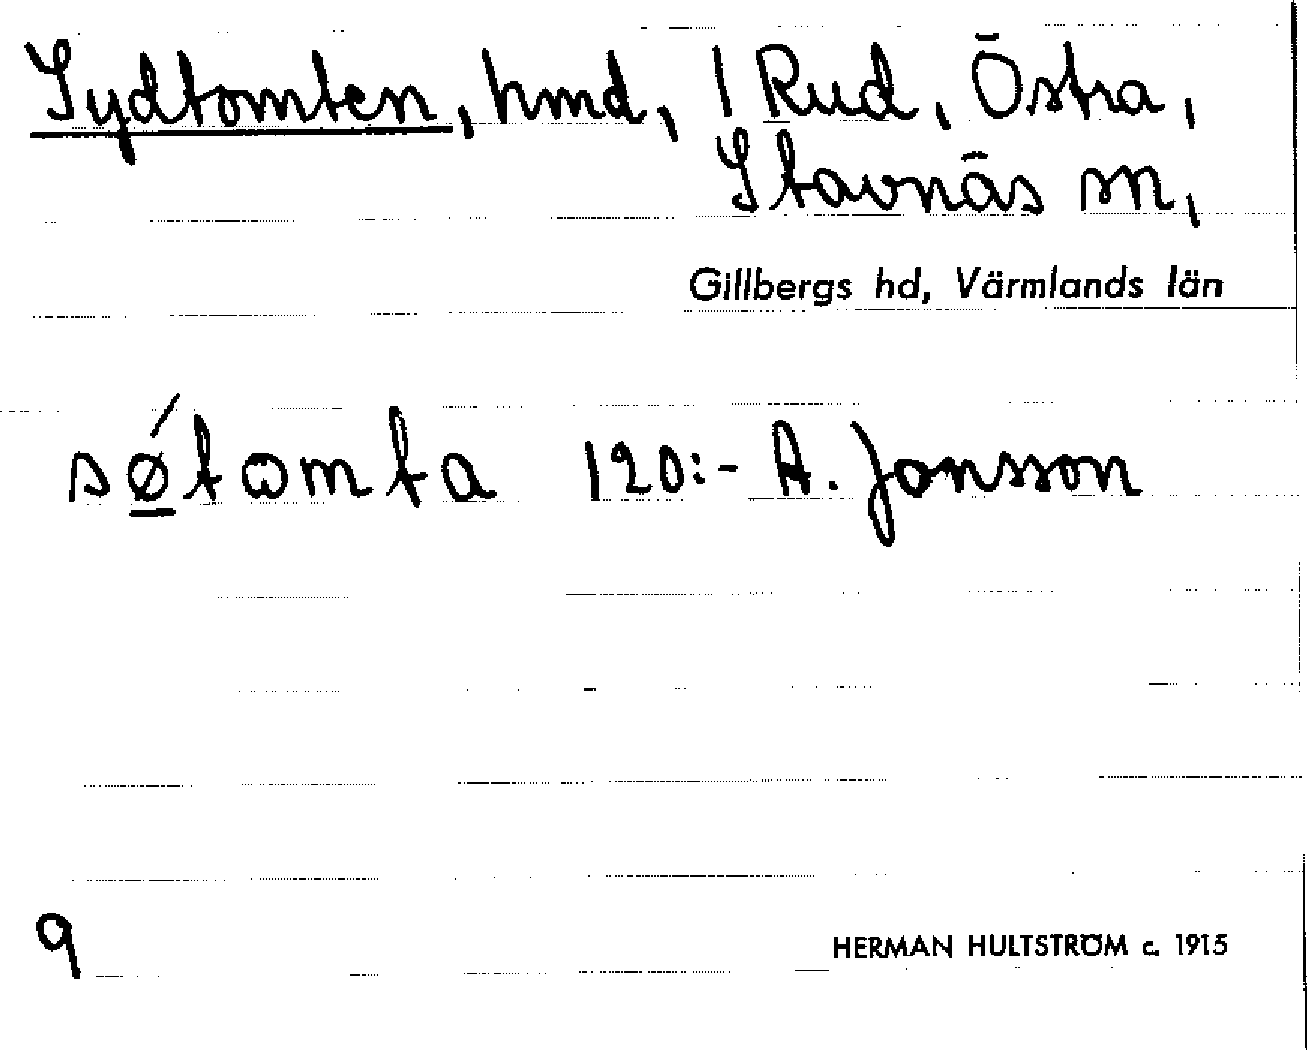 Sydtomten, hmd, 1 Rud, Östra,
Stavnäs sn,
Gillbergs hd, Värmlands län
sǿtωmta 120:- A. Jonsson
9
HERMAN HULTSTRÖM c. 1915